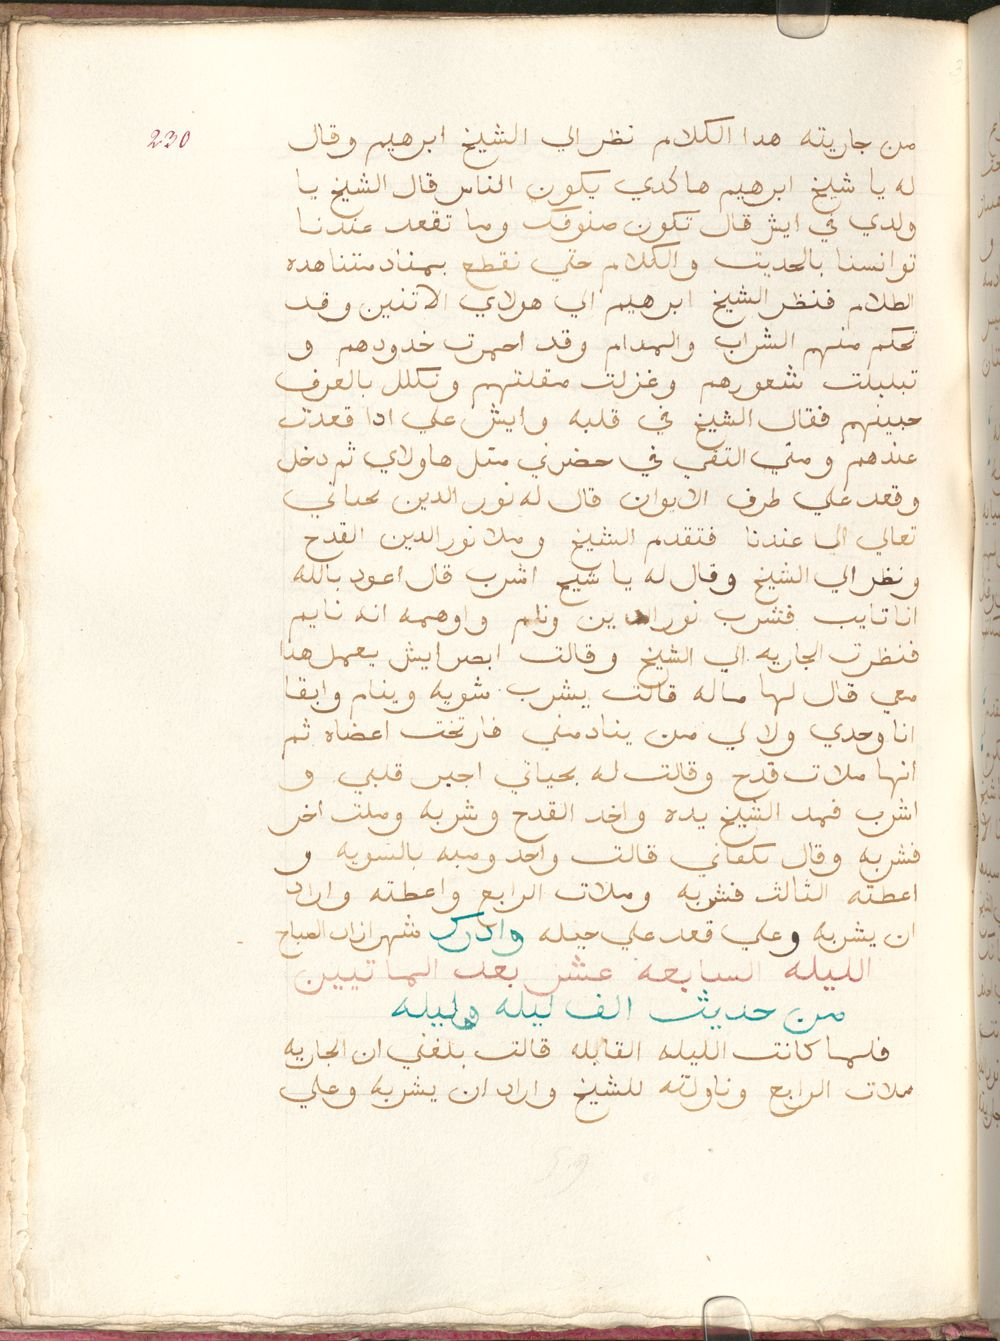 230
من جاريته هدا الكلام نظر الي الشيخ ابرهيم وقال
له يا شيخ ابرهيم هاكدي يكون الناس قال الشيخ يا
ولدي في ايش قال تكون صنوفك وما تقعد عندنا
توانسنا بالحديت والكلام حتي نقطع بمنادمتنا هده
الطلام فنظر الشيخ ابرهيم الي هولاي الاتنين وقد
تحكم منهم الشراب والمدام وقد احمرت خدودهم و
تبلبلت شعورهم وغزلت مقلتهم وتكلل بالعرف
جبينهم فقال الشيخ في قلبه وايش علي ادا قعدت
عندهم ومتي التقي في حضرتي متل هاولاي ثم دخل
وقعد علي طرف الايوان قال له نور الدين بحياتي
تعالي الي عندنا فتقدم الشيخ وملا نور الدين القدح
ونظر الي الشيخ وقال له يا شيخ اشرب قال اعود بالله
انا تايب فشرب نور الدين ونام واوهمه انه نايم
فنظرت الجاريه الي الشيخ وقالت ابصر ايش يعمل هدا
معي قال لها ماله قالت يشرب شويه وينام وابقا
انا وحدي ولا لي من ينادمني فارتخت اعضاه ثم
انها ملات قدح وقالت له بحياتي اجبر قلبي و
اشرب فمد الشيخ يده واخد القدح وشربه وملت اخر
فشربه وقال بكفاني قالت واحد وميه بالسويه و
اعطته الثالث فشربه وملات الرابع واعطته واراد
ان يشربه وعلي قعد علي حيله وادرك شهرازاد الصباح
الليله السابعه عشر بعد الماتيين
من حديث الف ليله وليله
فلما كانت الليله القابله قالت بلغني ان الجاريه
ملات الرابع وناولته للشيخ واراد ان يشربه وعلي